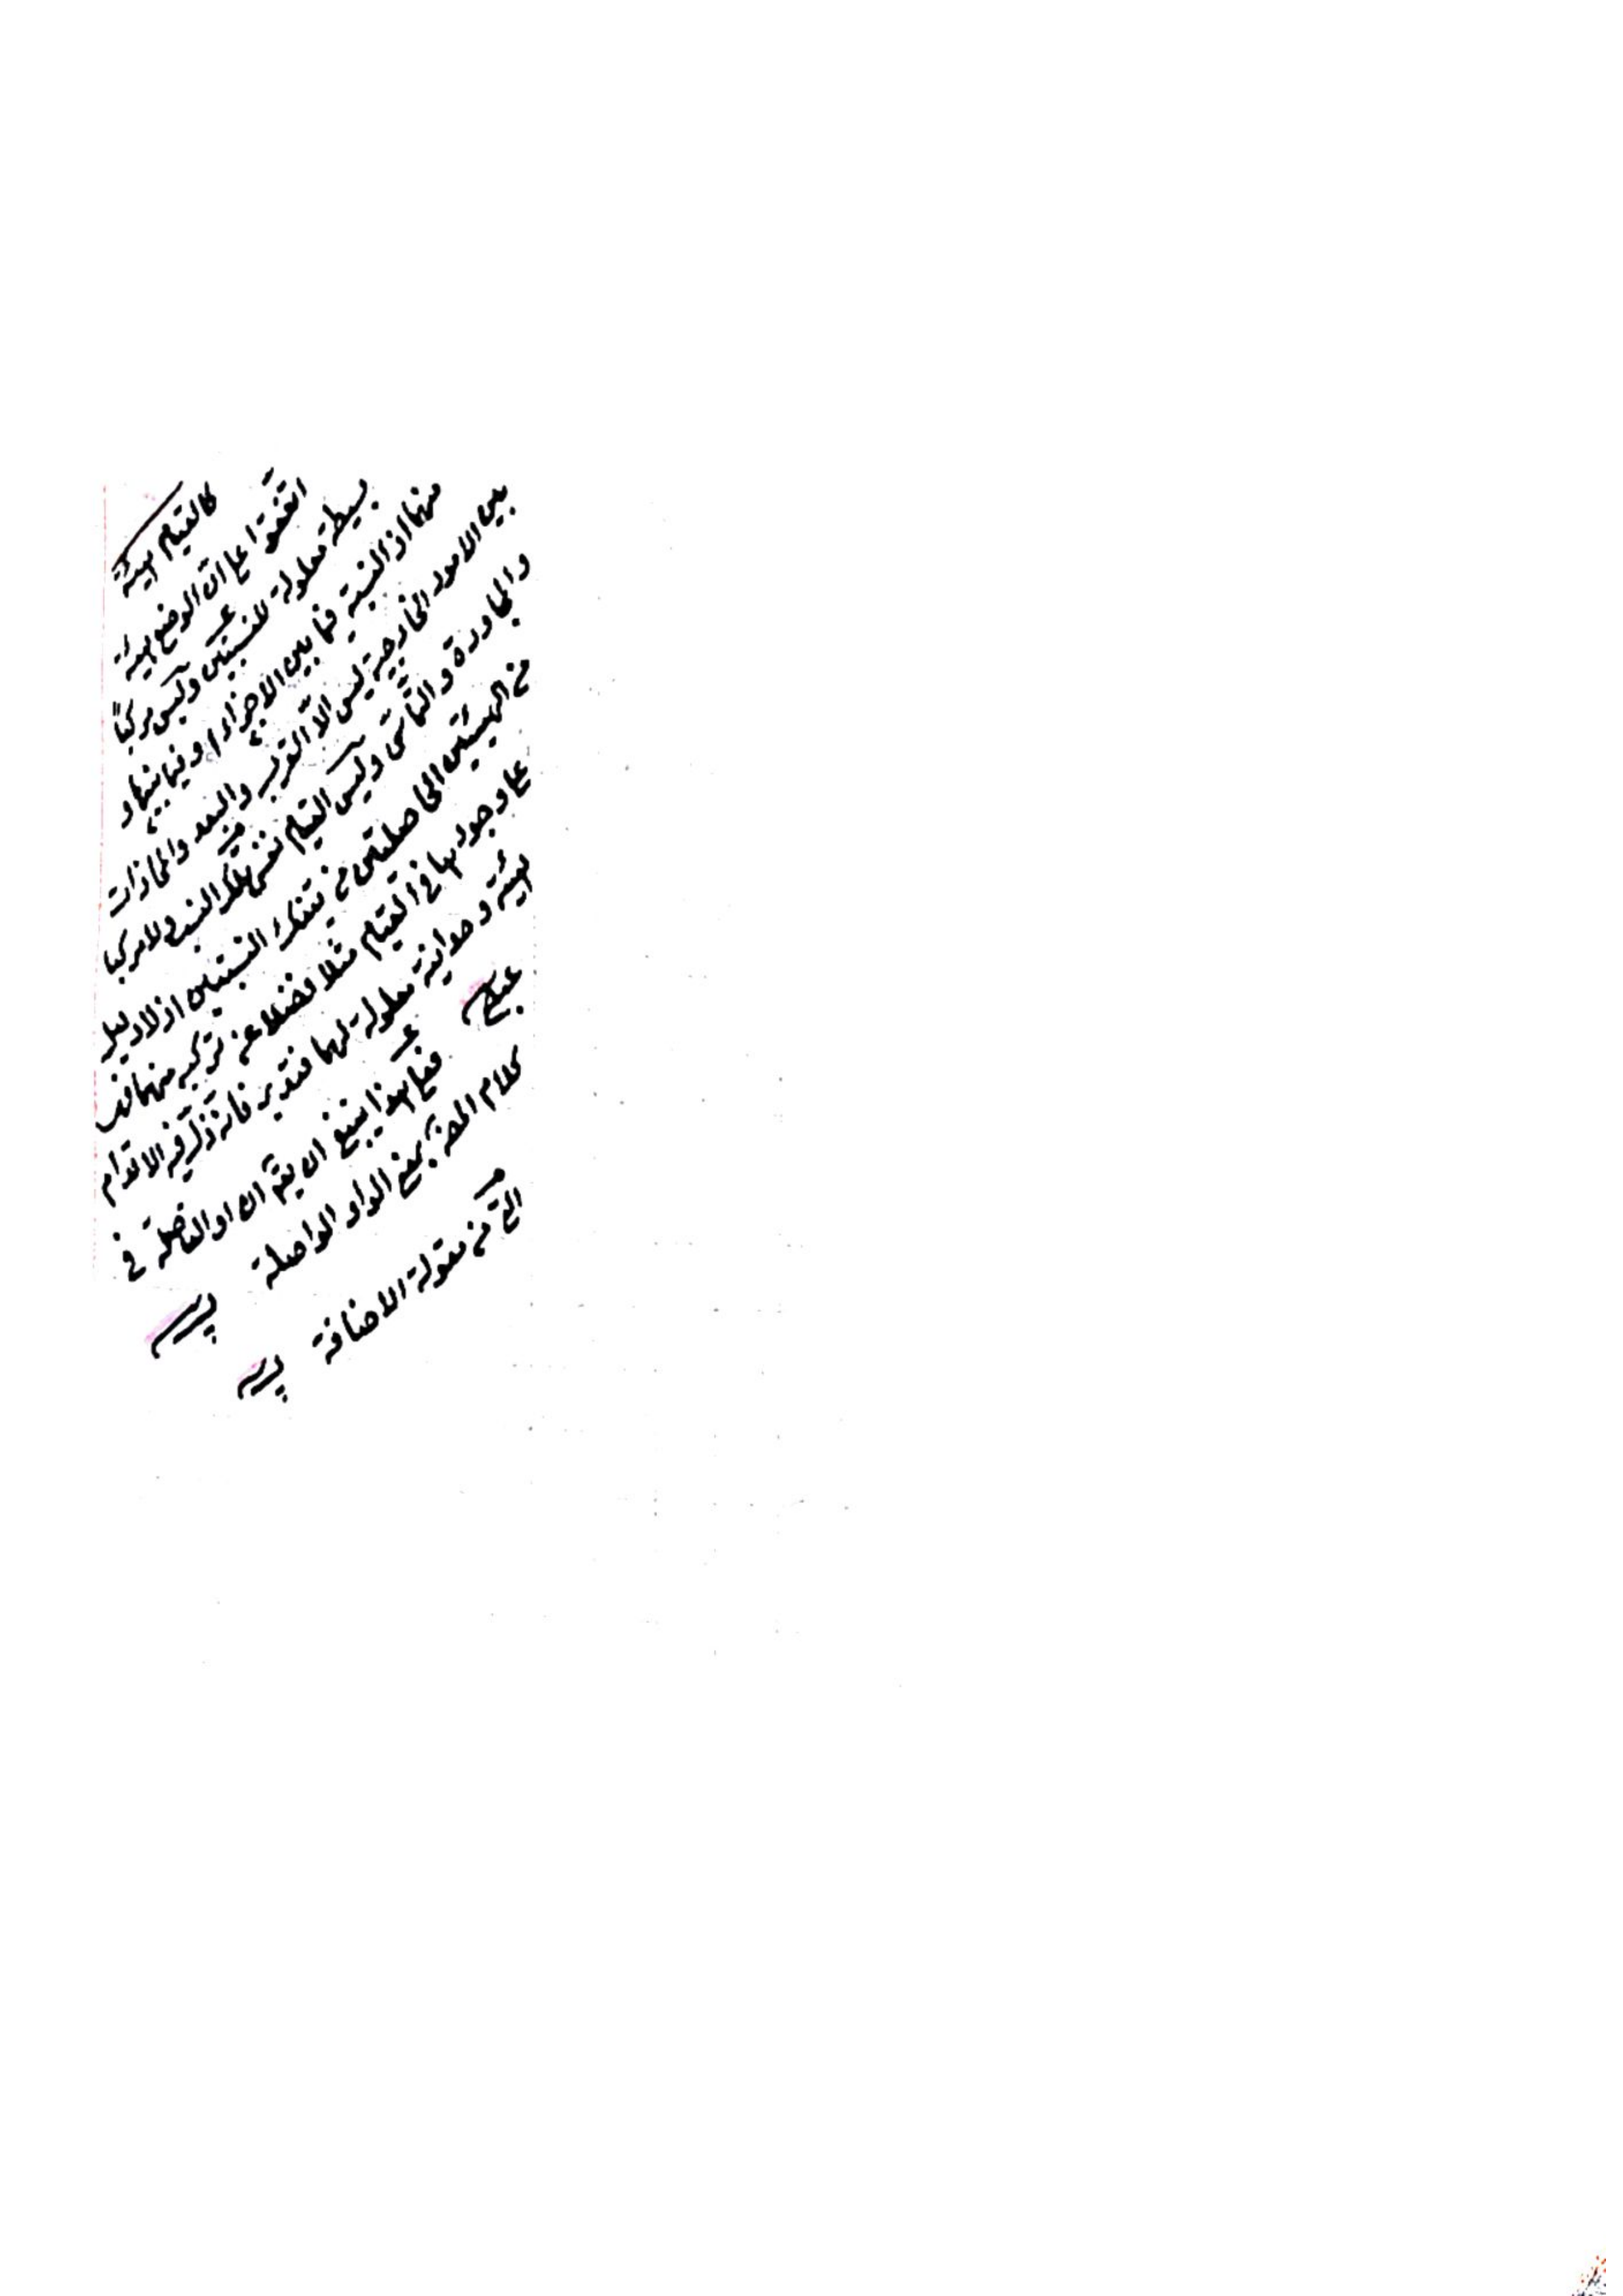 كالقيام هيئة
اتفقوا على ان الوضع هيئة
بسيطة معلولة للنسبتين وليس مركبا
منهما اذ النسبة فيما بين الاجزاء او فيما بينها و
بين الامور الخارجية ليس الا القرب والبعد والمحاذات
والمجاورة والتماس وليس القيام نفس تلك النسب ولا مركبا
من الهيئتين الحاصلتين من تينك النسبتين اذ لا دليل
على وجودهما في القيام مثلا فضلا عن تركبه منهما
هيئة وحدانية معلولة لهما فتدبر فانه مزلة الاقدام
فعلى هذا ينبغي ان يقال ان او الفاصلة في
كلام المص بمعنى الواو الواصلة
من مقولة الاضافة